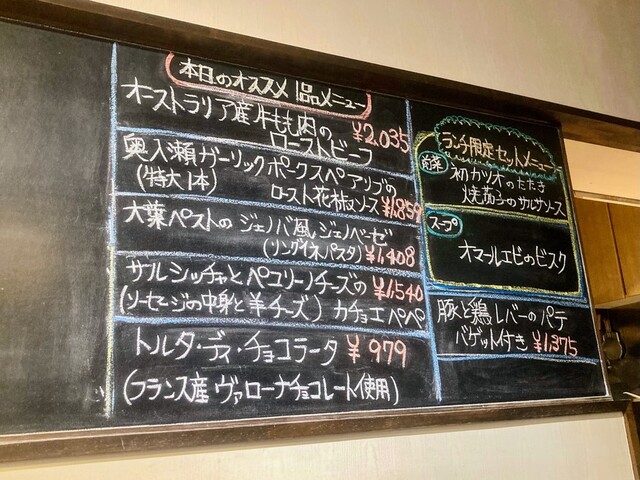 本日のオススメ1品メニュー
オーストラリア産牛もも肉の
ローストビーフ ¥2,035
奥入瀬ガーリックポークスペアリブの
(特大1本) ロースト花椒ソース ¥1,859
大葉ペーストのジェノバ風ジェノベーゼ
(リングイネパスタ) ¥1,408
サルシッチャとペコリーノチーズの ¥1,540
(ソーセージの中身と羊チーズ) カチョエペペ
トルタ・ディ・チョコラータ ¥979
(フランス産ヴァローナチョコレート使用)
ランチ限定セットメニュー
前菜 初カツオのたたき
焼茄子のサルサソース
スープ
オマールエビのビスク
豚と鶏レバーのパテ
バゲット付き ¥1,375